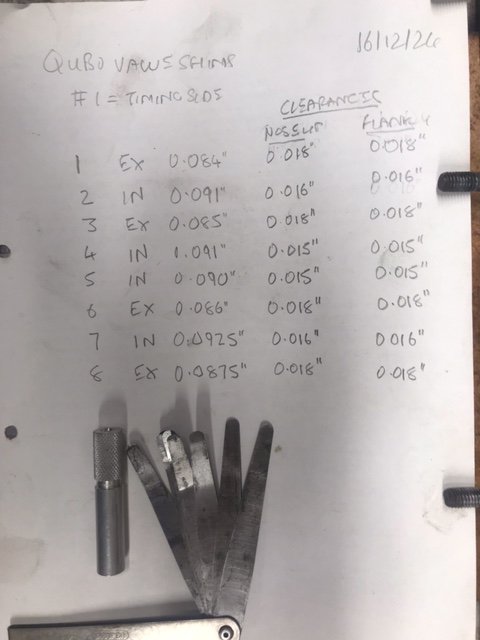 16/12/24
QUBO VALVE SHIMS
#1 = TIMING SIDE
CLEARANCES
NOSSUP FLANK
1 EX 0.084" 0.018" 0.018"
2 IN 0.091" 0.016" 0.016"
3 EX 0.085" 0.018" 0.018"
4 IN 0.091" 0.015" 0.015"
5 IN 0.090" 0.015" 0.015"
6 EX 0.086" 0.018" 0.018"
7 IN 0.0925" 0.016" 0.016"
8 EX 0.0875" 0.018" 0.018"